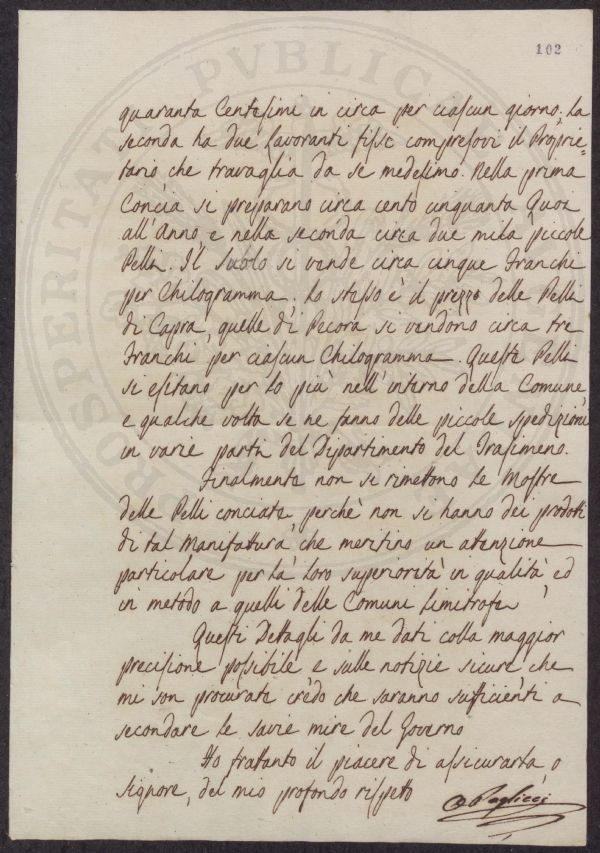 102
quaranta Centesimi in circa per ciascun giorno. La
seconda ha due lavoranti fissi compresovi il Proprie=
tario che travaglia da se medesimo. Nella prima
Concia si preparano circa cento cinquanta Quoi
all'Anno e nella seconda circa due mila piccole
Pelli. Il Suolo si vende circa cinque Franchi
per Chilogramma. Lo stesso è il prezzo delle Pelli
di Capra, quelle di Pecora si vendono circa tre
Franchi per ciascun Chilogramma. Queste Pelli
si esitano per lo più nell'interno della Comune
e qualche volta se ne fanno delle piccole spedizioni
in varie parti del Dipartimento del Trasimeno.
Finalmente non si rimettono le Mostre
delle Pelli conciate perchè non si hanno dei prodotti
di tal Manifattura, che meritino un attenzione
particolare per la loro superiorità in qualità ed
in metodo a quelli delle Comuni limitrofe
Questi Dettagli da me dati colla maggior
precisione possibile e sulle notizie sicure che
mi son procurate credo che saranno sufficienti a
secondare le savie mire del Governo
Ho frattanto il piacere di assicurarla o
Signore, del mio profondo rispetto
Pagliacci
PROSPERITATI PVBLICAE